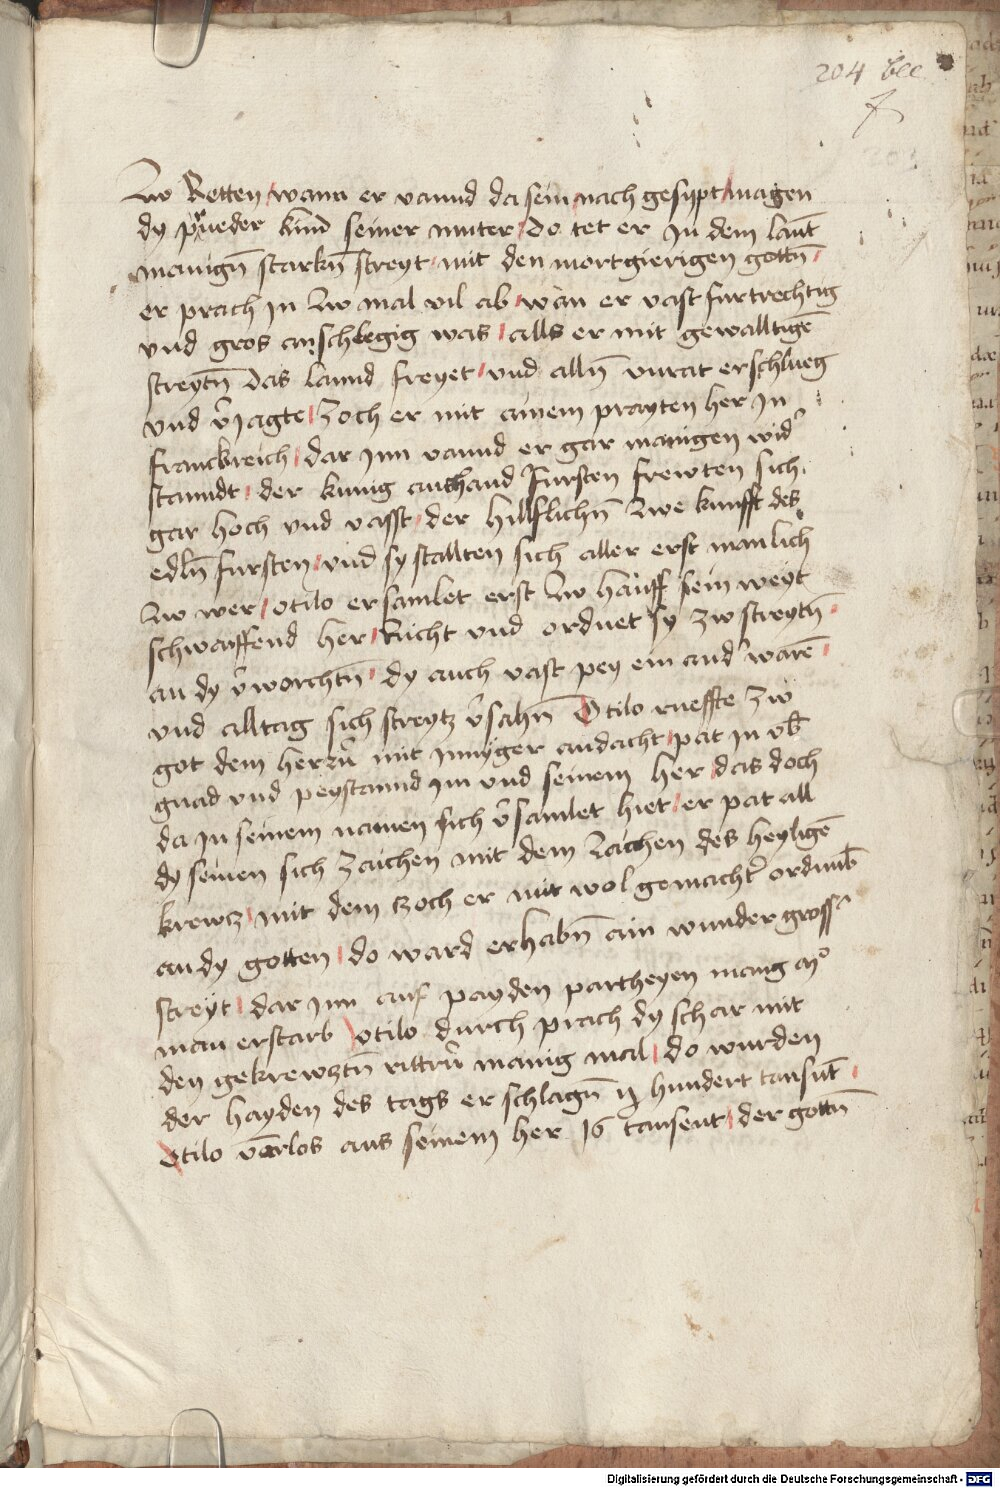 204 bcc
Zw Retten / wann er vannd da sein nach gesippt / magen
dy prueder kind seiner muter / Do tet er In dem lant̄
manign̄ starkn̄ streyt / mit den mortgierigen gottn̄ /
er prach In Zw mal vil ab / wan er vast furtrechtig
vnd gros anschlegig was / alls er mit gewalltigē
streytn̄ das lannd freyet / vnd alln̄ vnrat erschlueg
vnd v̄Jagte / Zoch er mit ainem prayten her In
franckreich / dar Inn vannd er gar manigen wid̄
stanndt / der kunig auch und Fursten frewten sich
gar hoch vnd vasst / der hilfflichn̄ Zwe kunfft des
edln̄ fursten / vnd sy stallten sich aller erst manlich
Zw wer / Otilo ersamlet erst Zw hauff sein weyt
schwaiffend her / Richt vnd ordnet sy zw streytn̄
an dy v̄worchtn̄ / dy auch vast pey ein and̄ warē /
vnd alltag sich streytz v̄sahn̄ Otilo rueffte Zw
got dem herrn̄ mit Innyger andacht / pat In vb̄
gnad vnd peystannd Im vnd seinem her / das doch
da In seinem namen sich v̄samlet hiet / er pat all
dy seinen sich Zaichen mit dem Zaichen des heyligē
krewcz / mit dem zoch er mit wol gemachter ordnūg
an dy gotten / do ward erhabn̄ ain wunder gross
streyt / dar Inn auf payden partheyen manig Mo
man erstarb / Otilo durch prach dy schar mit
den gekrewsztn̄ rittrn̄ manig mal / do wurden
der hayden des tags erschlagn̄ ij hundert tausūt /
Otilo v̄erlos aus seinem her 16 tausent / der gottn̄
Digitalisierung gefördert durch die Deutsche Forschungsgemeinschaft - DFG